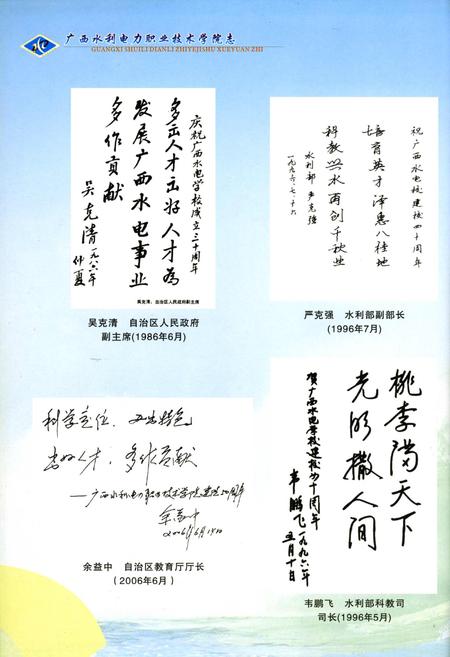 广西水利电力职业技术学院志
GUANGXI SHUILI DIANLI ZHIYEJISHU XUEYUAN ZHI
庆祝广西水电学校成立三十周年
多出人才出好人才为
发展广西水电事业
多作贡献
吴克清
一九八六年
仲夏
吴克清：自治区人民政府副主席
吴克清 自治区人民政府
副主席(1986年6月)
祝广西水电校建校四十周年
培育英才泽惠八桂地
科教兴水再创千秋业
水利部 严克强
一九九六·七·十六
严克强 水利部副部长
(1996年7月)
科学定位，办出特色
出好人才，多作贡献
——广西水利电力职业技术学院建院50周年
余益中
2006年6月
余益中 自治区教育厅厅长
(2006年6月)
桃李满天下
光明撒人间
贺广西水电学校建校四十周年
韦鹏飞一九九六年
五月十日
韦鹏飞 水利部科教司
司长(1996年5月)